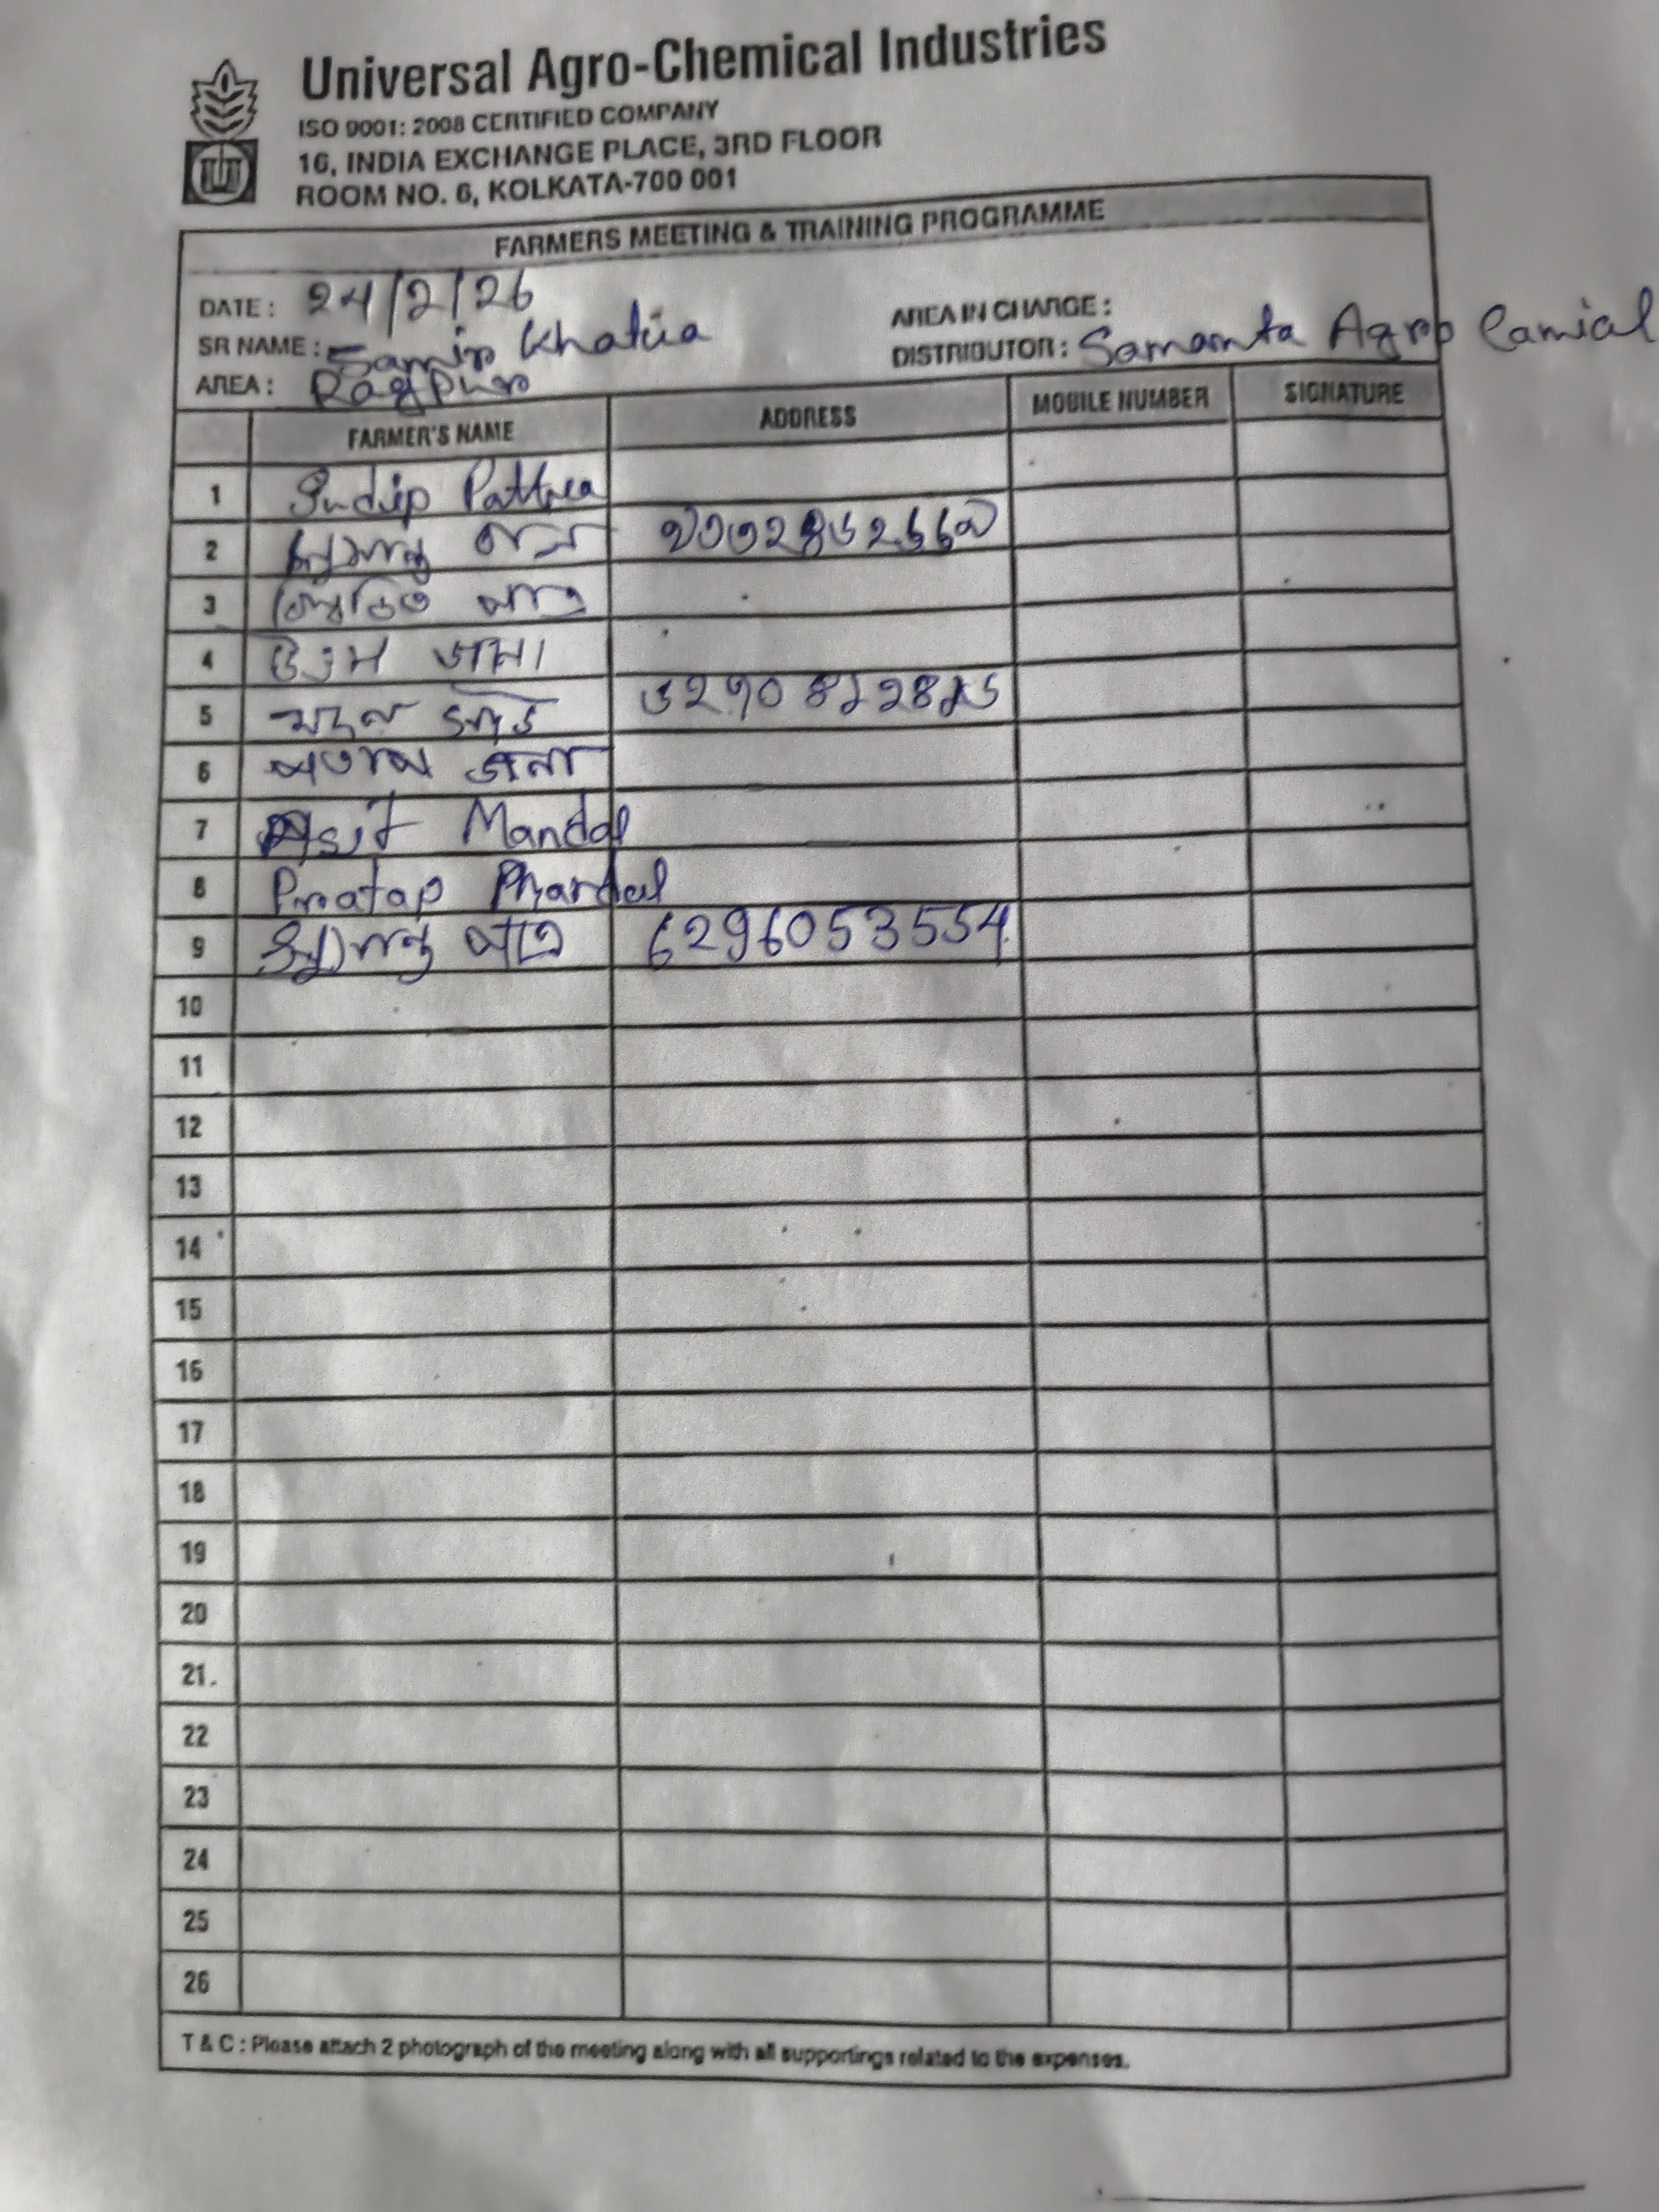 Universal Agro-Chemical Industries
ISO 9001: 2008 CERTIFIED COMPANY
16, INDIA EXCHANGE PLACE, 3RD FLOOR
ROOM NO. 6, KOLKATA-700 001
FARMERS MEETING & TRAINING PROGRAMME
DATE : 24/2/26
AREA IN CHARGE :
SR NAME : Samir Khatua
DISTRIBUTOR : Samanta Agro Camial
AREA :
FARMER'S NAME ADDRESS MOBILE NUMBER SIGNATURE
1 Sudip Pattra
2
3
4 উত্তম জানা
5
6 জানা
7 Asit Mandal
8 Pratap
9 6296053554
10
11
12
13
14
15
16
17
18
19
20
21.
22
23
24
25
26
T & C : Please attach 2 photograph of the meeting along with all supportings related to the expenses.